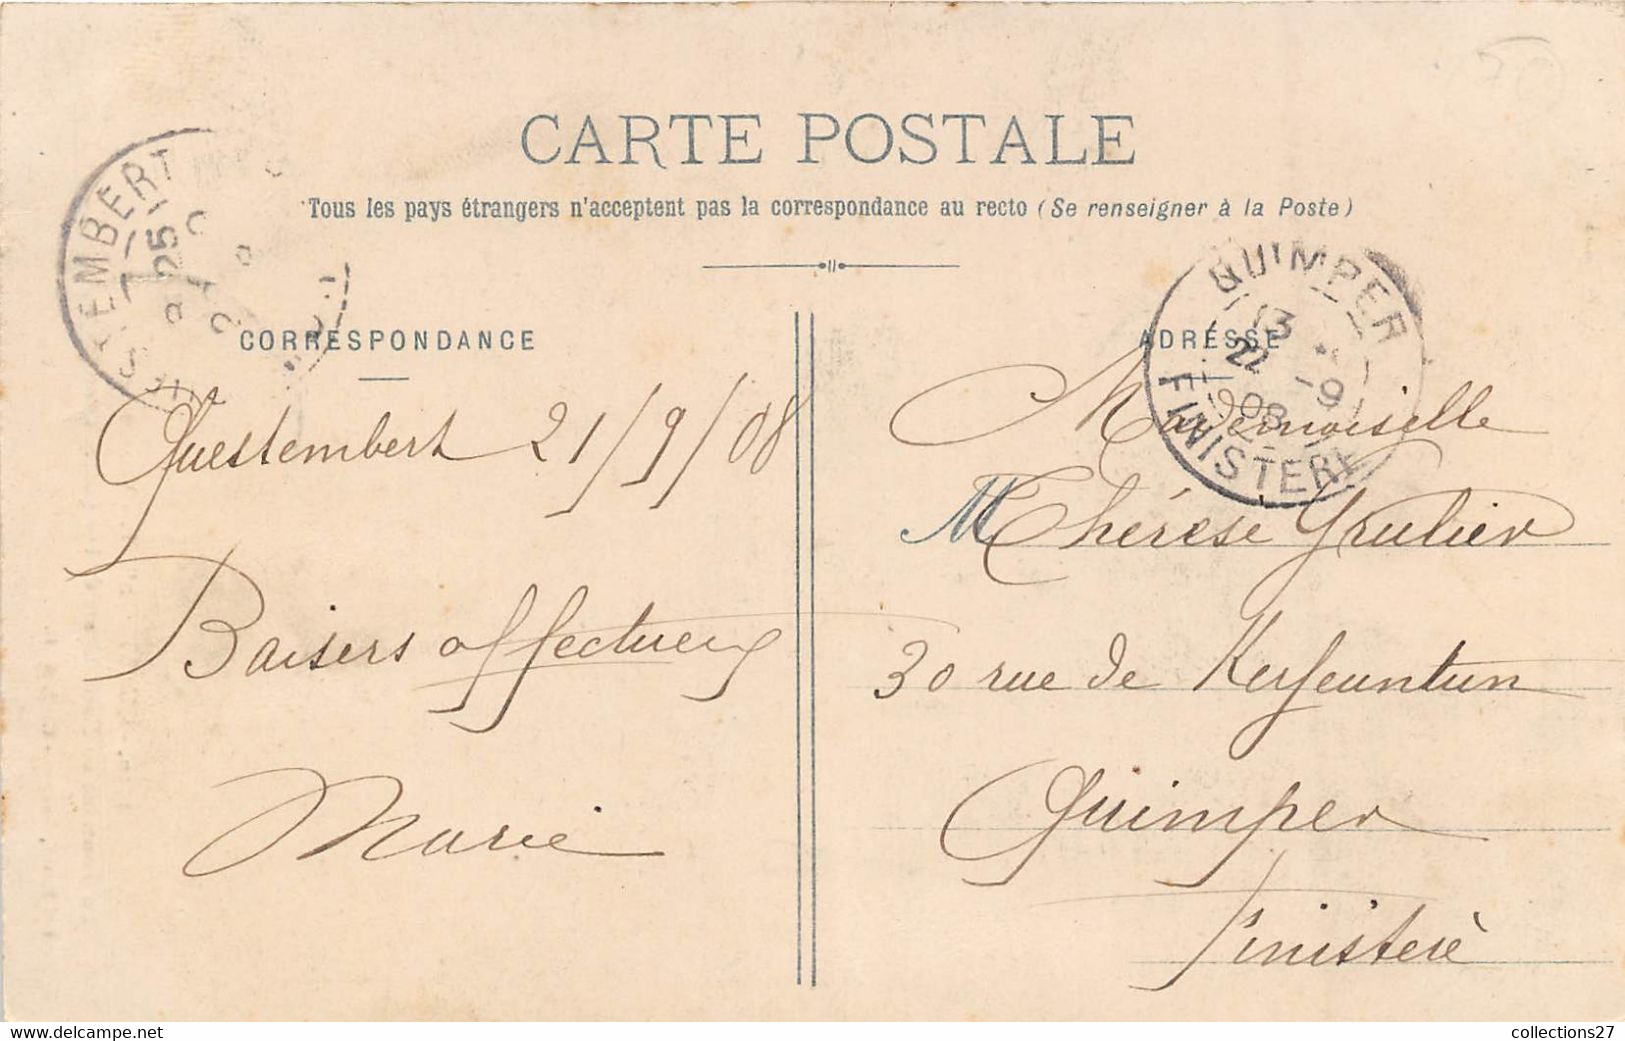 CARTE POSTALE
Tous les pays étrangers n'acceptent pas la correspondance au recto (Se renseigner à la Poste)
QUESTEMBERT
QUIMPER
13
22 -9
08
FINISTERE
CORRESPONDANCE
ADRESSE
Questembert 21/9/08
Baisers affectueux
Marie
Mademoiselle
M Thérèse Grulier
30 rue de Kerfeuntun
Quimper
Finistère
www.delcampe.net
collections27